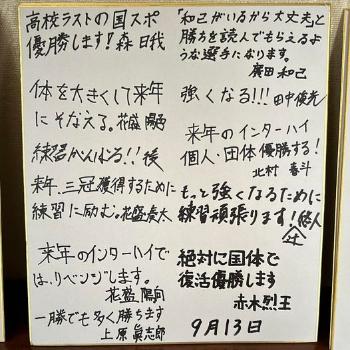 高校ラストの国スポ
優勝します!森 日我
体を大きくして来年
にそなえる。花盛
練習がんばる!!
来年、三冠獲得するために
練習に励む。花盛虎太
来年のインターハイで
は、リベンジします。
花盛 陽向
一勝でも多く勝ちます
上原 眞志郎
「和己がいるから大丈夫」と
勝ちを読んでもらえるよ
うな選手になります。
廣田 和己
強くなる!!! 田中
来年のインターハイ
個人・団体優勝する!
北村 喜斗
もっと強くなるために
練習頑張ります!
絶対に国体で
復活優勝します
赤木烈王
9月13日